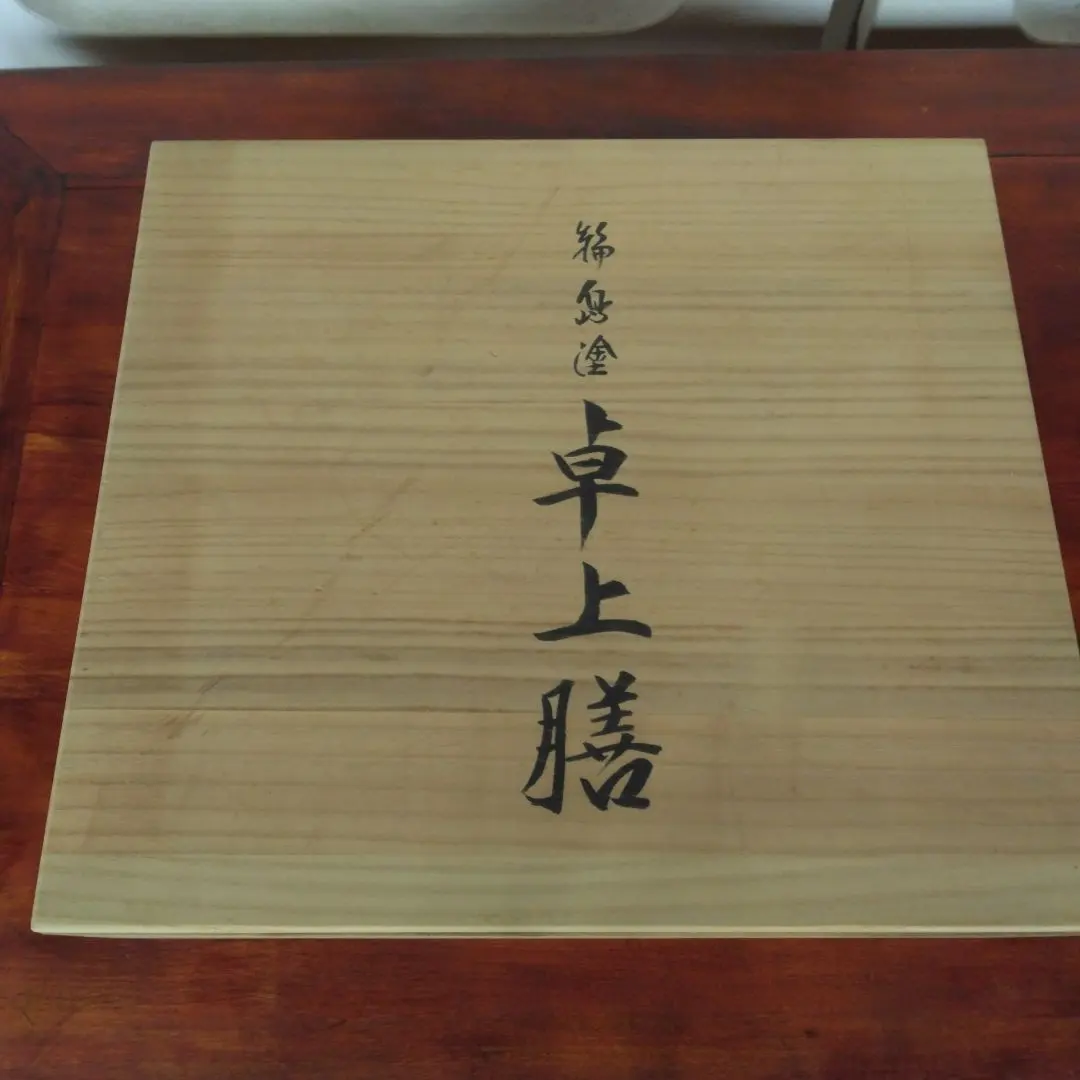 輪島塗卓上膳